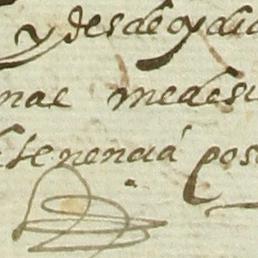 y desde oy dia
nae medesi
tenencia pos